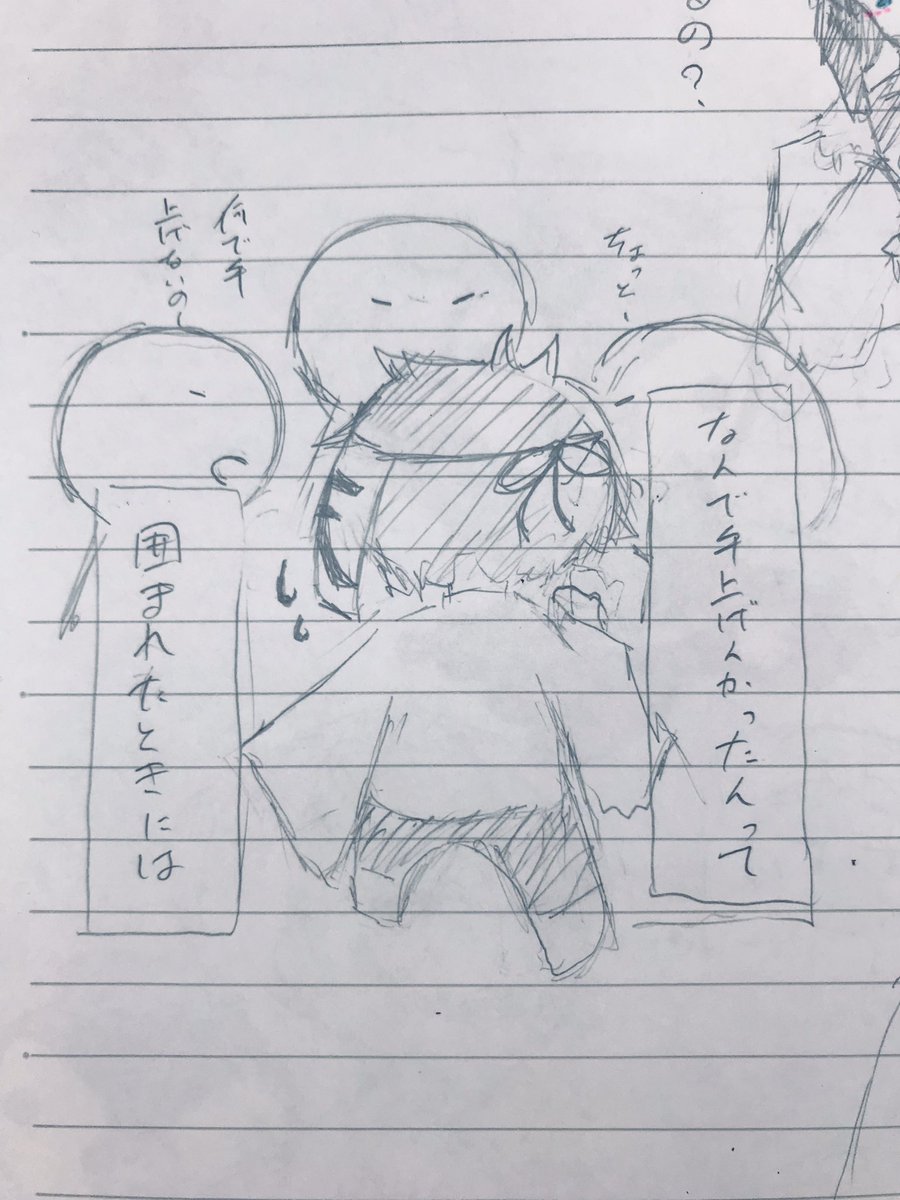 の?
ちょっと、
何で手
上げないの〜
なんで手上げんかったんって
囲まれたときには